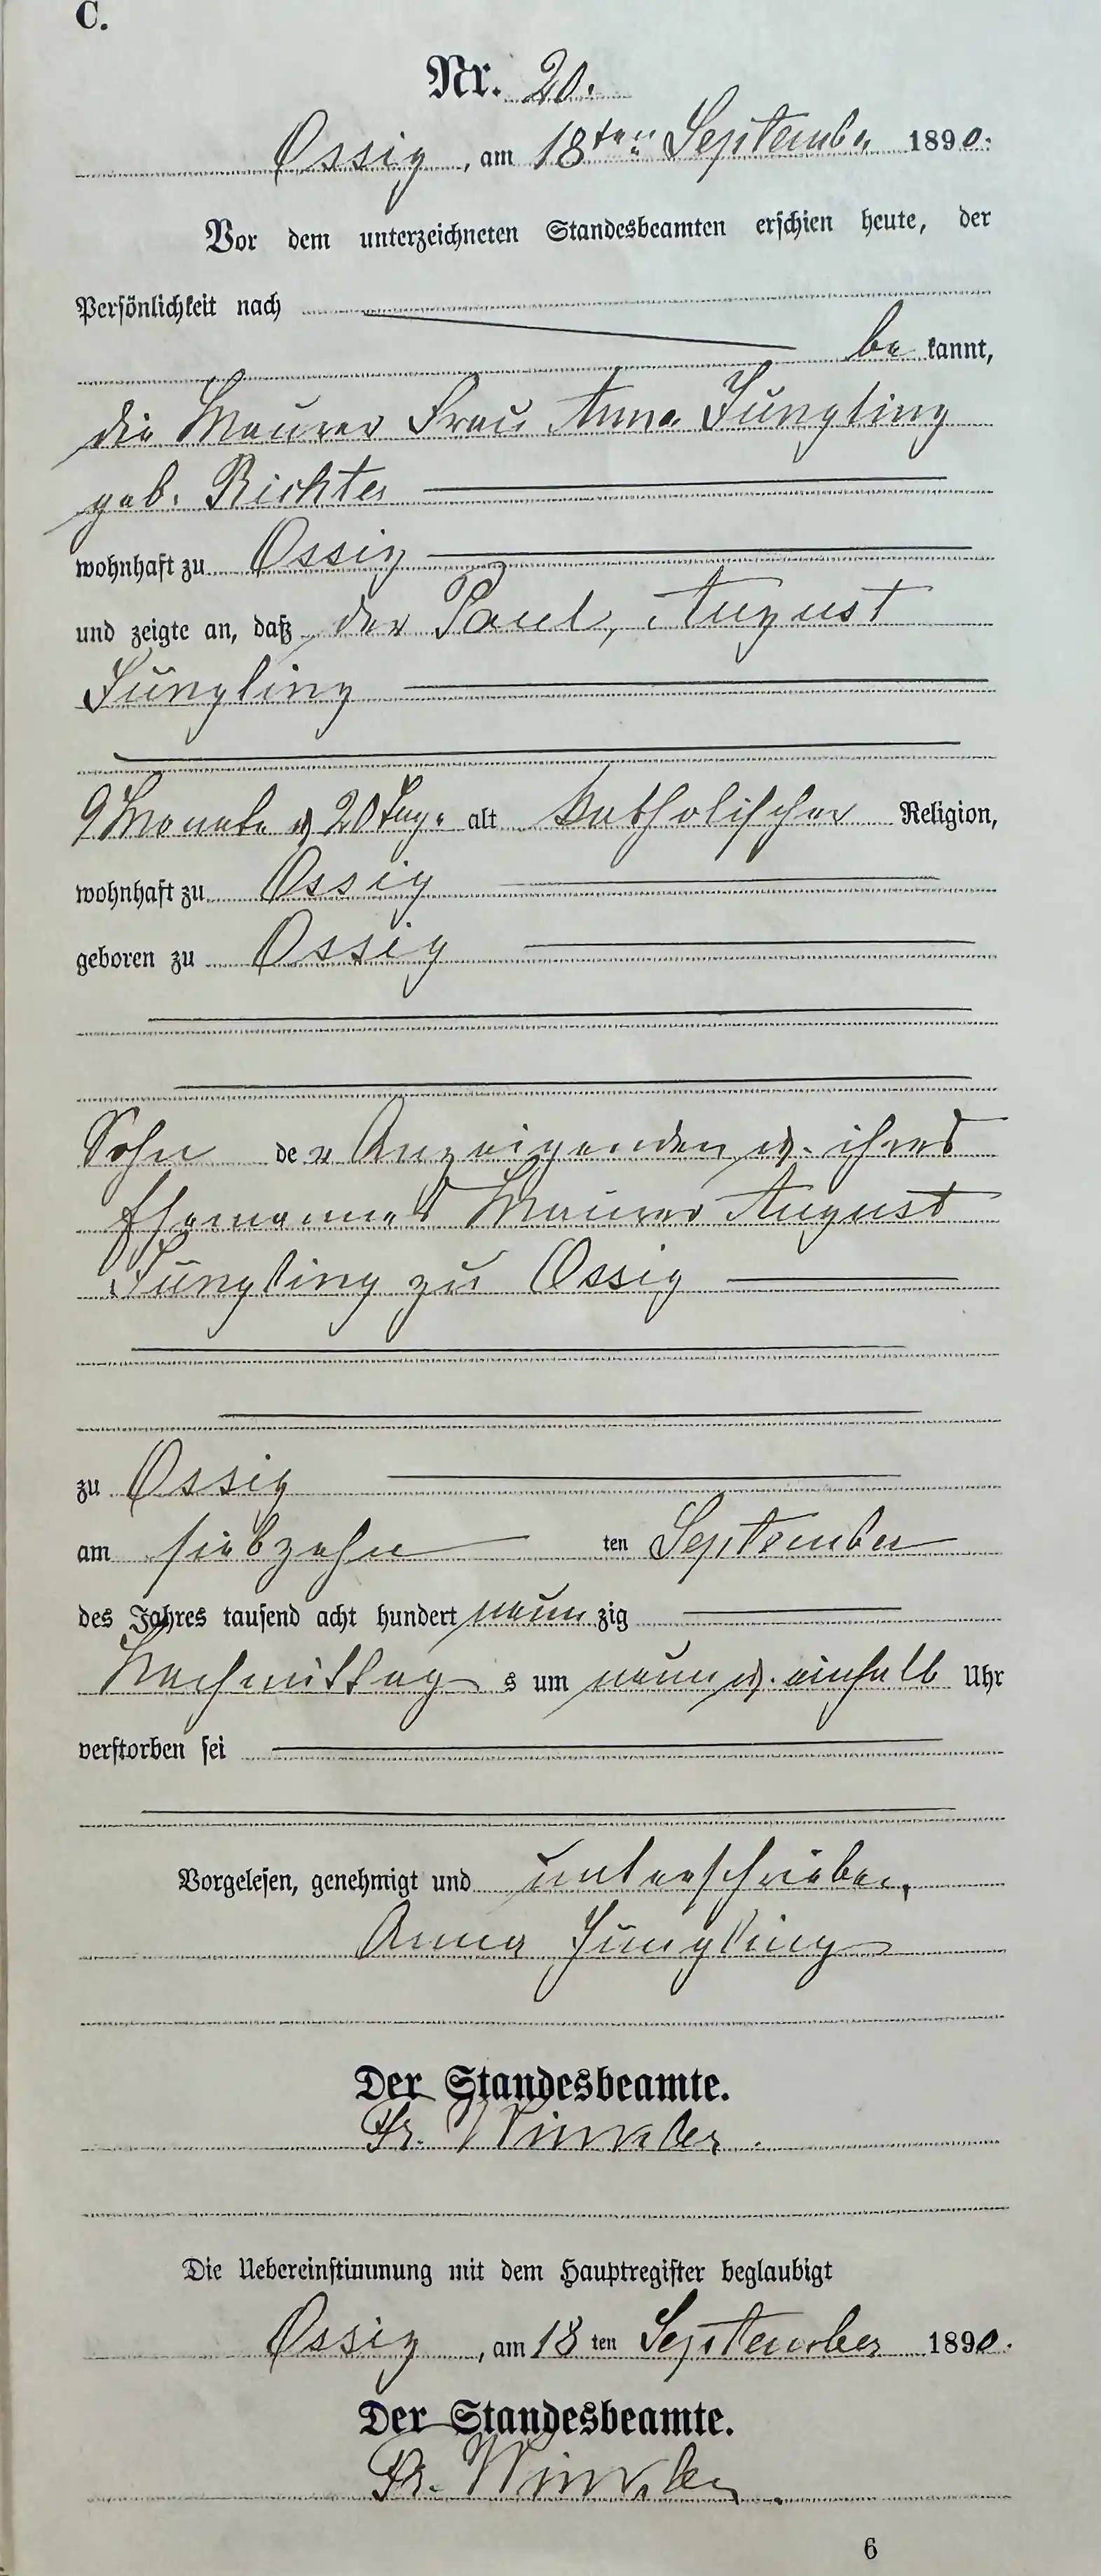 C.
Nr. 20.
Ossig, am 18ten September 1890.
Vor dem unterzeichneten Standesbeamten erschien heute, der
Persönlichkeit nach
be kannt,
die Maurer Frau Anna Jüngling
geb. Richter
wohnhaft zu Ossig
und zeigte an, daß der Paul, August
Jüngling
9 Monate u 20 Tage alt katholischer Religion,
wohnhaft zu Ossig
geboren zu Ossig
Sohn der Anzeigenden u. ihres
Ehemannes Maurer August
Jüngling zu Ossig
zu Ossig
am siebzehn ten September
des Jahres tausend acht hundert neun zig
Nachmittag s um neun u. einhalb Uhr
verstorben sei
Vorgelesen, genehmigt und unterschrieben,
Anna Jüngling
Der Standesbeamte.
Fr. Winkler.
Die Uebereinstimmung mit dem Hauptregister beglaubigt
Ossig, am 18 ten September 1890.
Der Standesbeamte.
Fr. Winkler
6